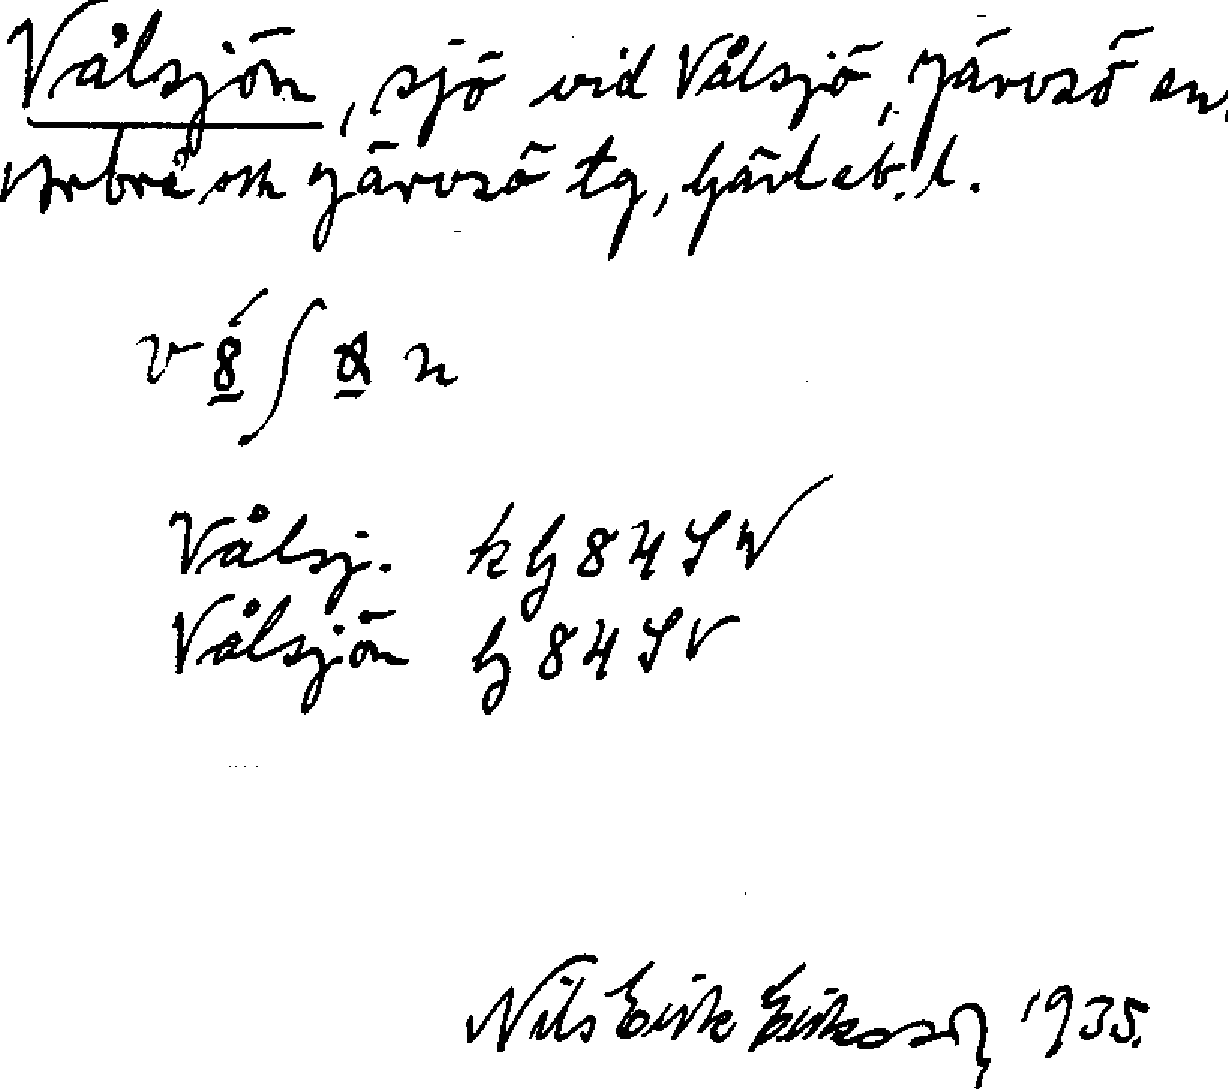 Vålsjön, sjö vid Vålsjö, Järvsö sn,
Arbrå och Järvsö tg, Gävleb. l.
Vålsj. k G 84 SV
Vålsjön G 84 SV
Nils Erik Eriksson 1935.